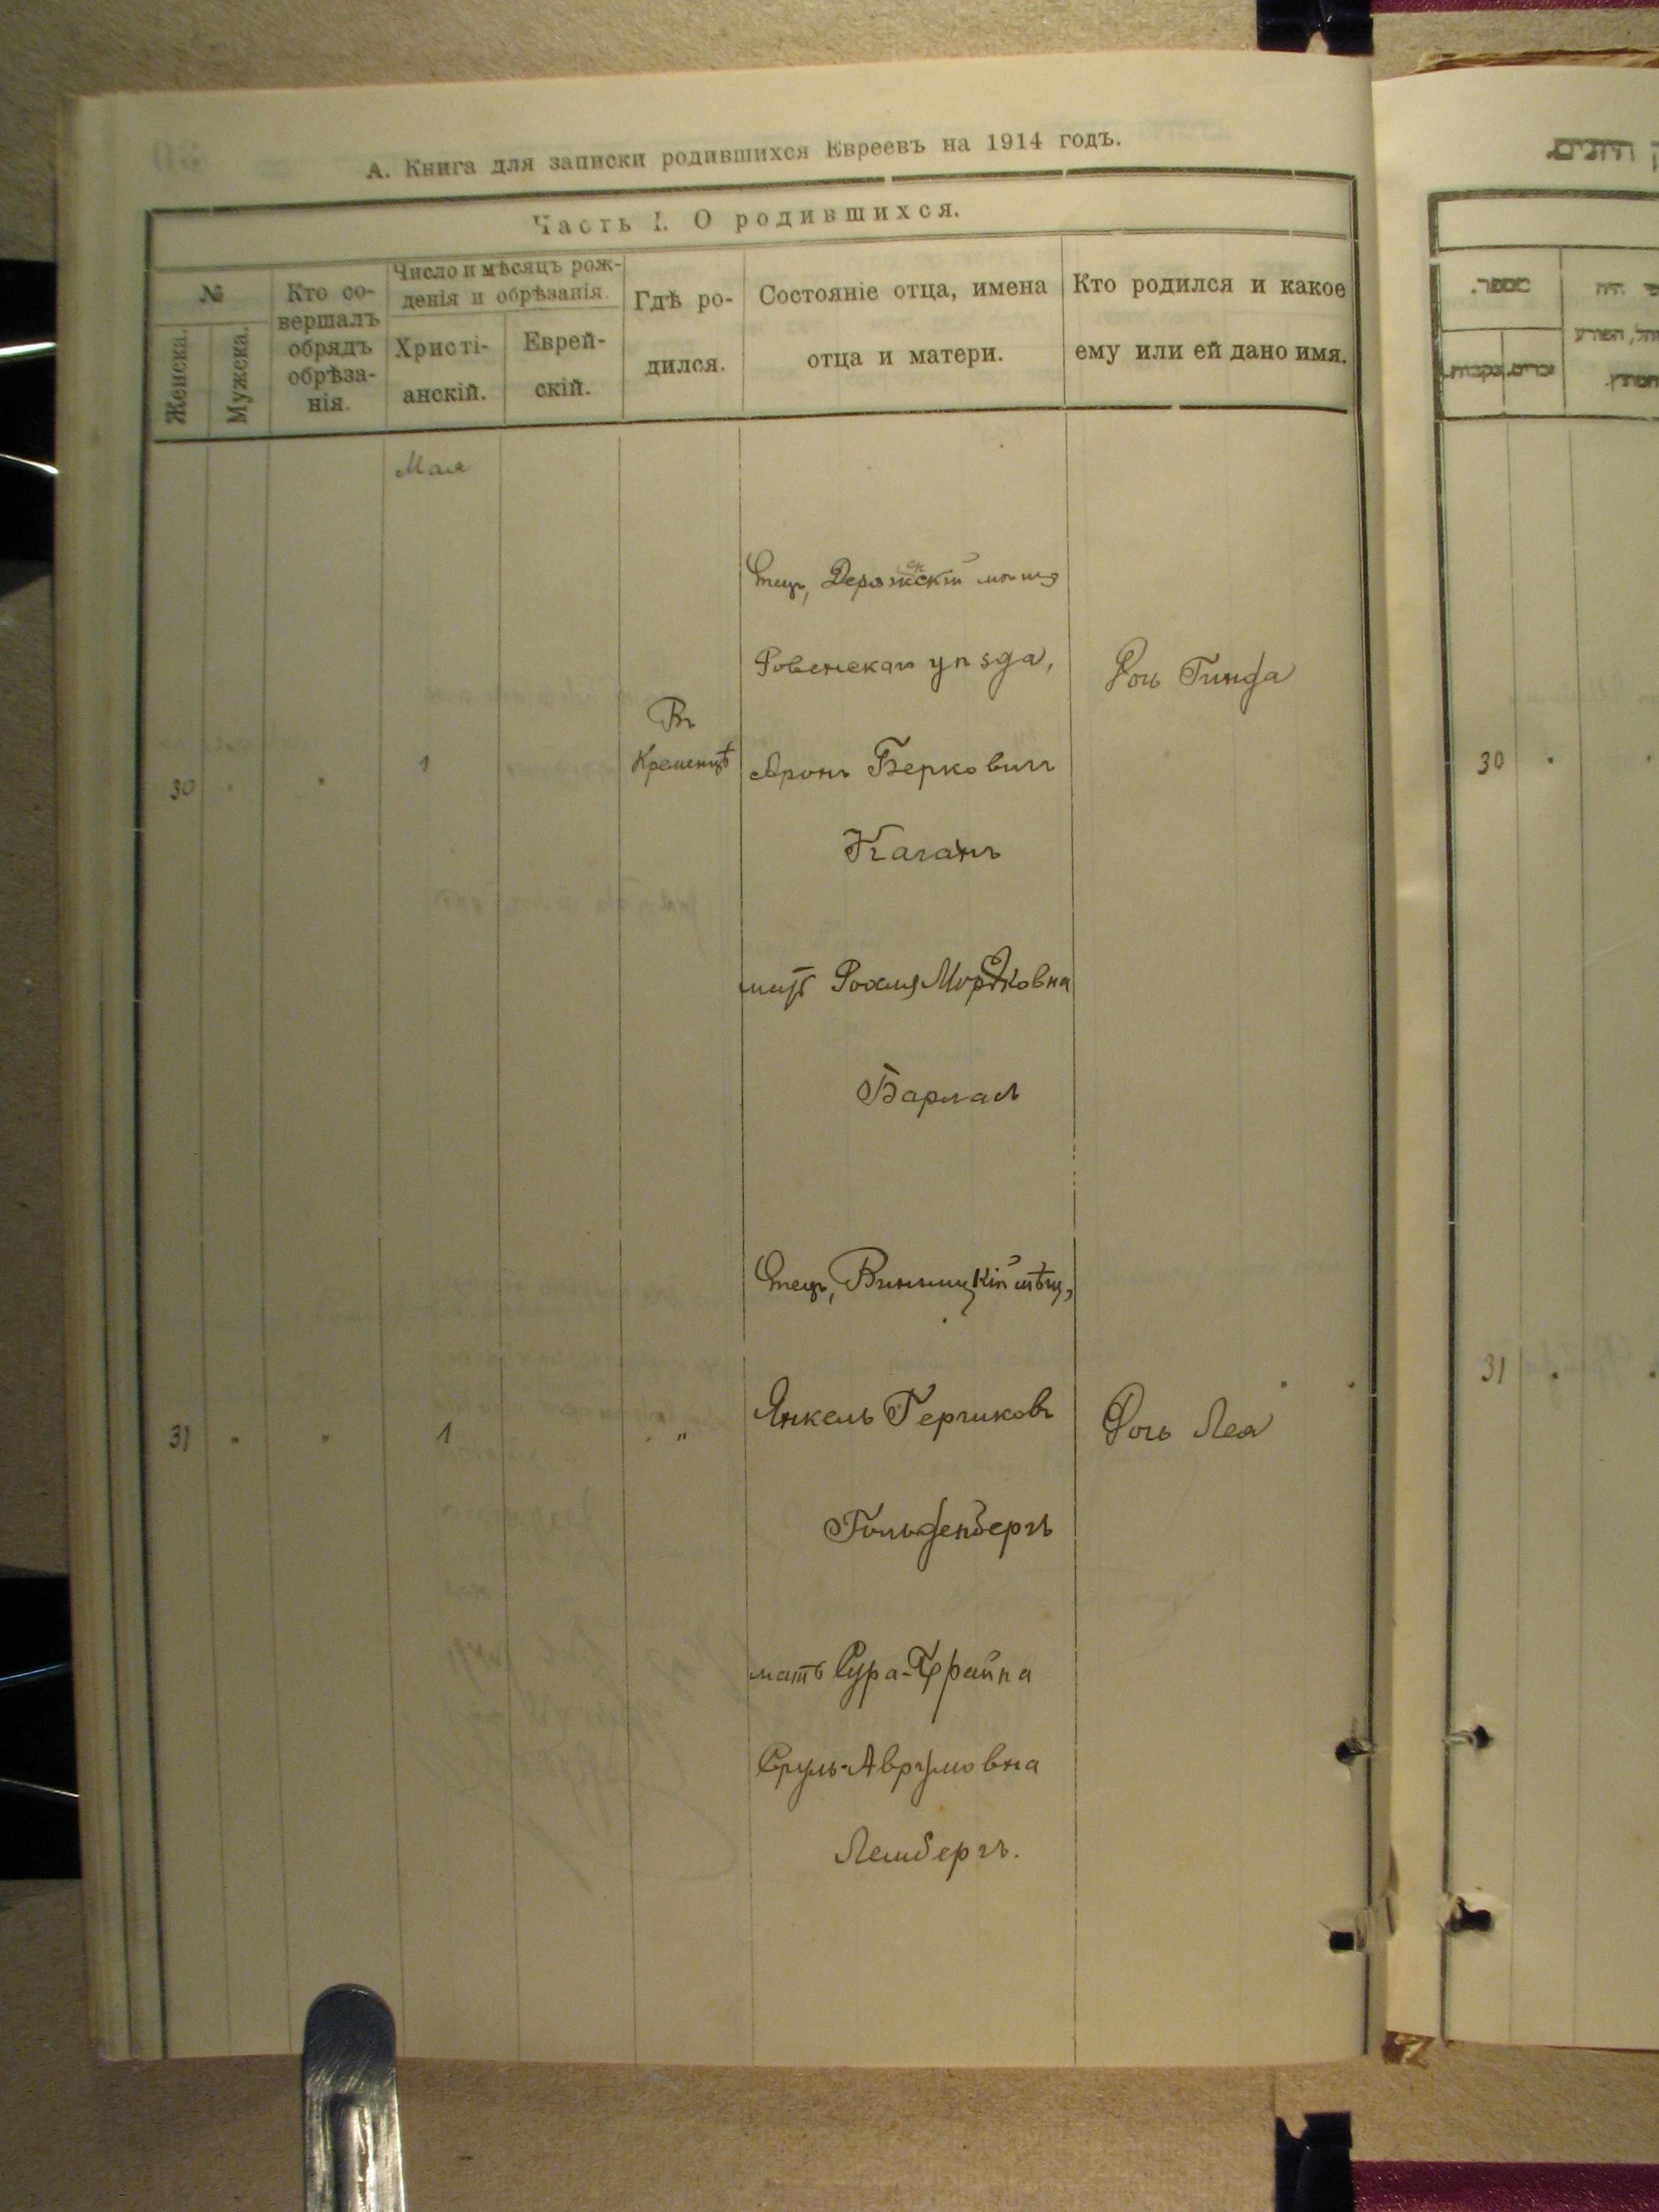 А. Книга для записки родившихся Евреевъ на 1914 годъ.
Часть I. О родившихся.
№
Женска.
Мужска.
Кто со-
вершалъ
обрядъ
обрѣза-
нія.
Число и мѣсяцъ рож-
денія и обрѣзанія.
Христі-
анскій.
Еврей-
скій.
Гдѣ ро-
дился.
Состояніе отца, имена
отца и матери.
Кто родился и какое
ему или ей дано имя.
Мая
30
1
Въ
Кременцѣ
Отецъ,
Ровенскаго уѣзда,
Аронъ Берковичъ
Каганъ
мать Рохля Мордковна
Бармал
Дочь Гинда
31
1
"
Отецъ, Винницкій мѣщ,
Янкель Гершковъ
Гольденбергъ
мать Сура-Фрайна
Сруль-Аврумовна
Лембергъ.
Дочь Лея
מספר.
נקבות.
זכרים.
30
31